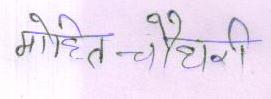 मोहित चौधरी